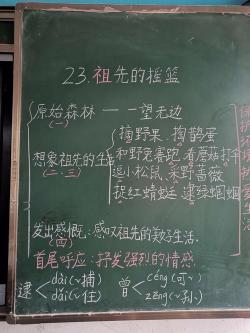 23.祖先的摇篮
原始森林——一望无边
(一)
摘野果 掏鹊蛋
想象祖先的生活
和野兔赛跑 看蘑菇打伞
(二、三)
逗小松鼠 采野蔷薇
捉红蜻蜓 逮绿蝈蝈
发出感慨:感叹祖先的美好生活.
(四)
首尾呼应:抒发强烈的情感
逮
dǎi(~捕)
dǎi(~住)
曾
céng(可~)
zēng(~孙)